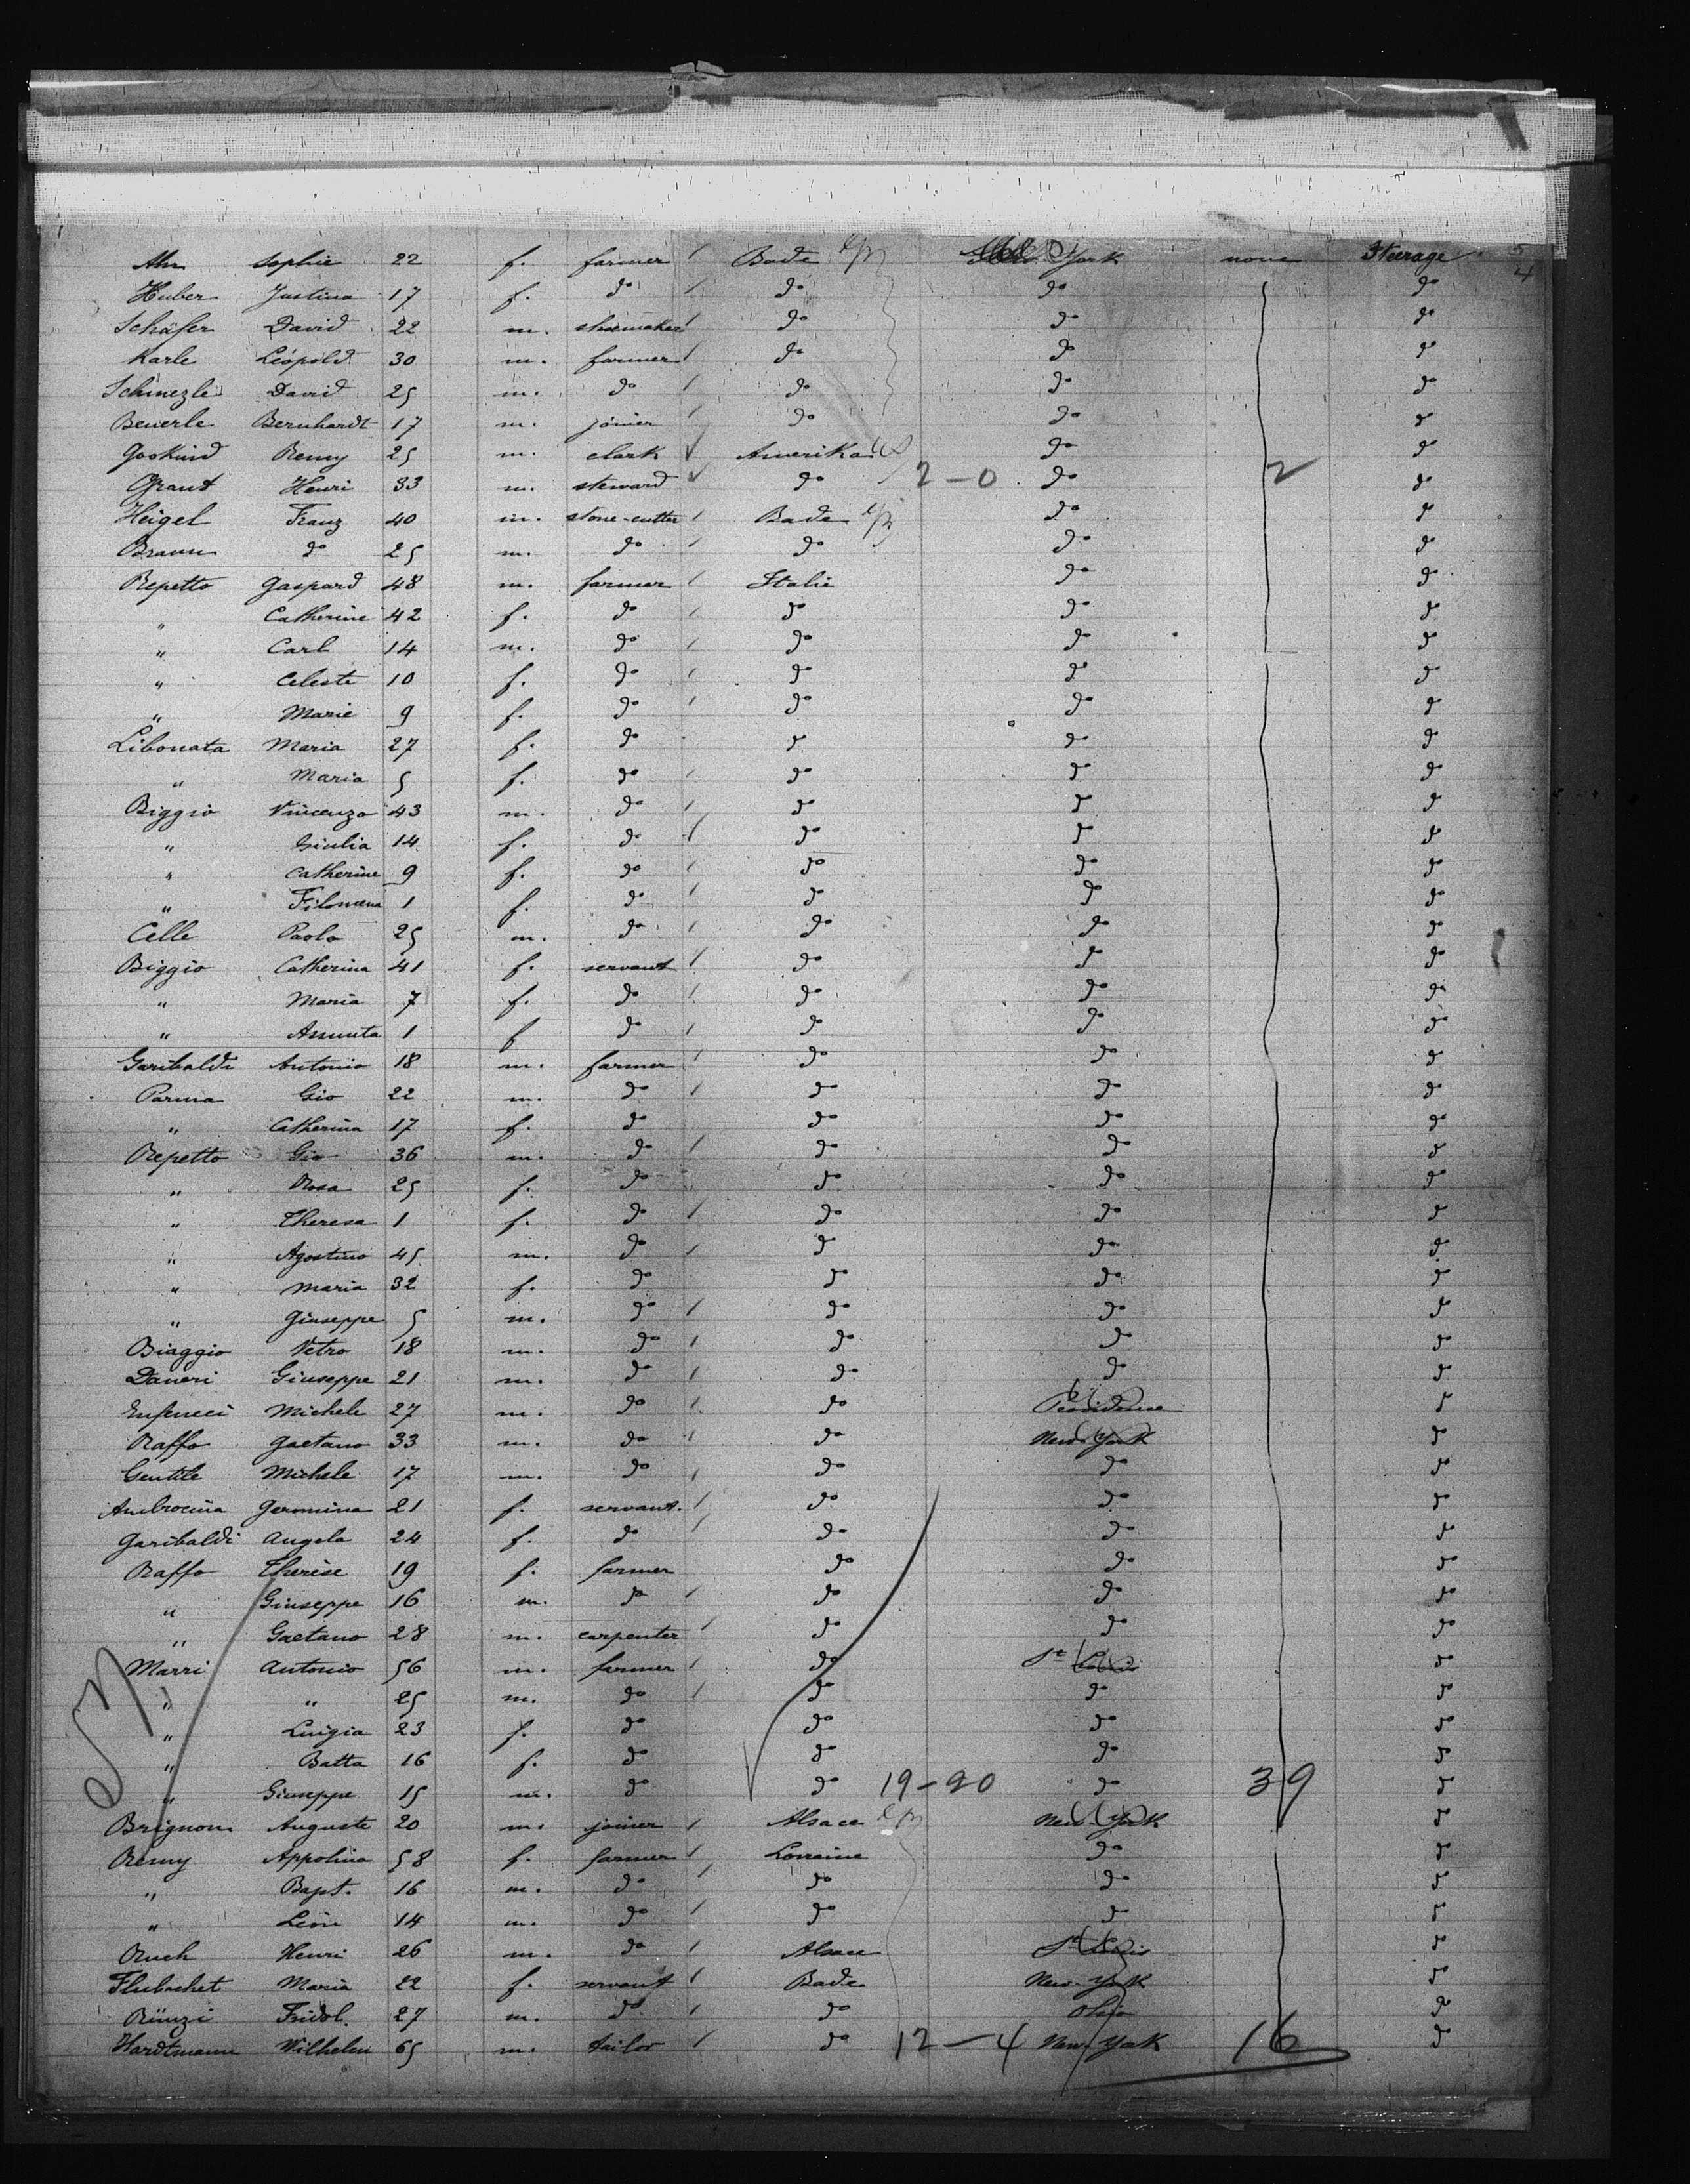 Ahr Sophie 22 f. farmer Bade New York none Steerage 5
Huber Justina 17 f. do do do do 4
Schäfer David 22 m. shoemaker do do do
Karle Léopold 30 m. farmer do do do
Schinezle David 25 m. do do do do
Beuerle Bernhardt 17 m. joiner do do do
Gookind Remy 25 m. clark Amerika do do
Grant Henri 33 m. steward do 2-0 do 2 do
Heigel Franz 40 m. stone-cutter Bade do do
Braun do 25 m. do do do do
Repetto Gaspard 48 m. farmer Italie do do
" Catherine 42 f. do do do do
" Carl 14 m. do do do do
" Celeste 10 f. do do do do
" Marie 9 f. do do do do
Libonata Maria 27 f. do do do do
" Maria 5 f. do do do do
Biggio Vincenzo 43 m. do do do do
" Giulia 14 f. do do do do
" Catherine 9 f. do do do do
" Filomena 1 f. do do do do
Celle Paolo 25 m. do do do do
Biggio Catherina 41 f. servant do do do
" Maria 7 f. do do do do
" Assunta 1 f do do do do
Garibaldi Antonio 18 m. farmer do do do
Parma Gio 22 m. do do do do
" Catherina 17 f. do do do do
Repetto Gio 36 m. do do do do
" Rosa 25 f. do do do do
" Theresa 1 f. do do do do
" Agostino 45 m. do do do do
" Maria 32 f. do do do do
" Giuseppe 5 m. do do do do
Biaggio Vetro 18 m. do do do do
Daneri Giuseppe 21 m. do do do do
Michele 27 m. do do do
Raffo Gaetano 33 m. do do New York do
Gentile Michele 17 m. do do do do
Ambrocina Geromina 21 f. servant. do do do
Garibaldi Angela 24 f. do do do do
Raffo Therèse 19 f. farmer do do do
" Giuseppe 16 m. do do do do
" Gaetano 28 m. carpenter do do do
Marri Antonio 56 m. farmer do St Louis do
" " 25 m. do do do do
" Luigia 23 f. do do do do
" Batta 16 f. do do do do
" Giuseppe 15 m. do do 19-20 do 39 do
Brignon Auguste 20 m. joiner Alsace New York do
Remy Appolina 58 f. farmer Lorraine do do
" Bapt. 16 m. do do do do
" Léon 14 m. do do do do
Ruch Henri 26 m. do Alsace St Louis do
Flubachet Maria 22 f. servant Bade New York do
Bünzi Fridol. 27 m. do do Ohio do
Hardtmann Wilhelm 65 m. tailor do 12-4 New York 16 do